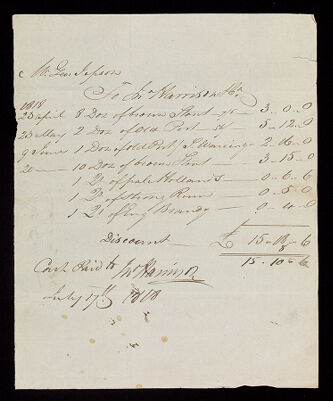 Mr. Geo. Jepson
To Jno. Harrison & Co.
1818
23 april 8 Doz of brown Stout 7/6 3 .. 0 .. 0
23 May 2 Doz of Old Port 5 .. 12 .. 0
9 June 1 Doz of old Port 2 .. 16 .. 0
20 — 10 Doz of brown Stout 3 .. 15 .. 0
1 Qt of pale Hollands 0 .. 6 .. 6
1 Qt of strong Rum 0 .. 5 .. 0
1 Qt of Brandy 0 .. 4 .. 0
£ 15 .. 18 .. 6
Discount 8
15 .. 10 .. 6
Cont. Paid to Jno Harrison
July 17th 1818